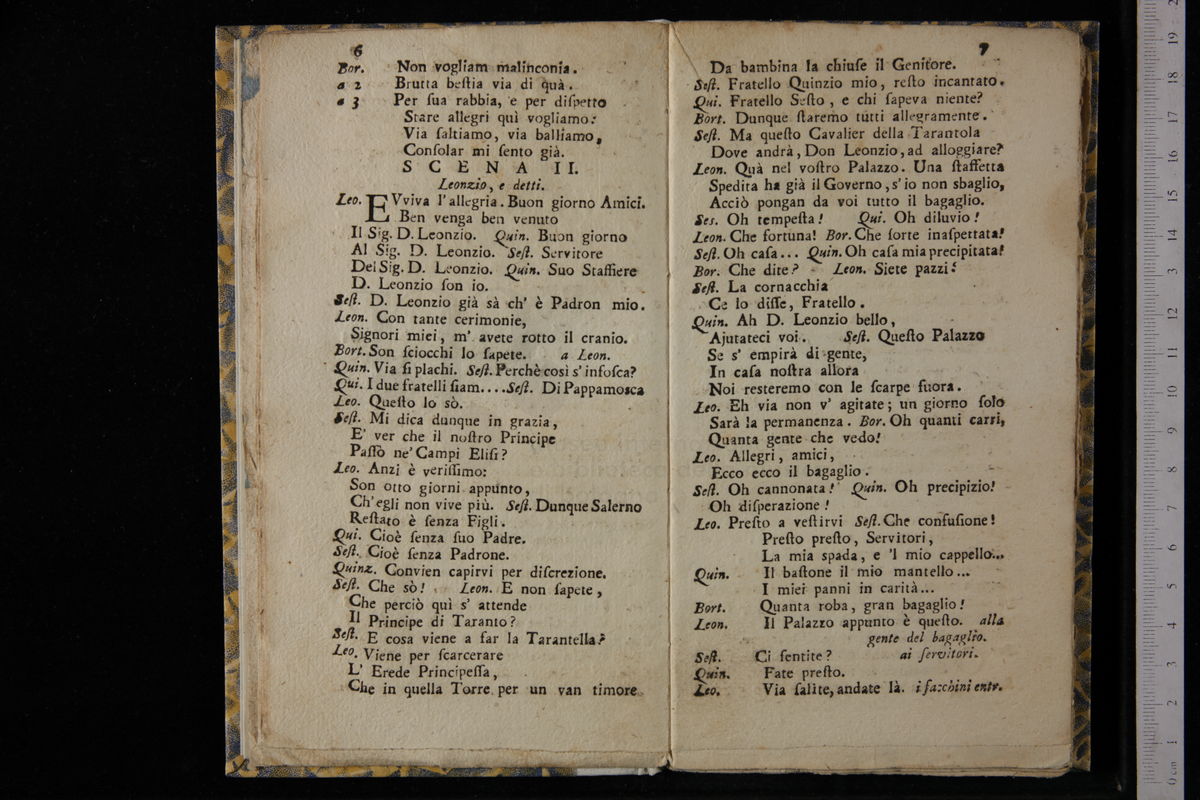 6
Bor. Non vogliam malinconia.
a 2 Brutta beſtia via di quà.
a 3 Per ſua rabbia, e per diſpetto
Stare allegri quì vogliamo:
Via ſaltiamo, via balliamo,
Conſolar mi ſento già.
SCENA II.
Leonzio, e detti.
Leo. EVviva l'allegria. Buon giorno Amici.
Ben venga ben venuto
Il Sig. D. Leonzio. Quin. Buon giorno
Al Sig. D. Leonzio. Seſt. Servitore
Del Sig. D. Leonzio. Quin. Suo Staffiere
D. Leonzio ſon io.
Seſt. D. Leonzio già sà ch' è Padron mio.
Leon. Con tante cerimonie,
Signori miei, m' avete rotto il cranio.
Bort. Son ſciocchi lo ſapete. a Leon.
Quin. Via ſi plachi. Seſt. Perchè così s' infoſca?
Qui. I due fratelli ſiam.... Seſt. Di Pappamosca
Leo. Queſto lo sò.
Seſt. Mi dica dunque in grazia,
E' ver che il noſtro Principe
Paſsò ne' Campi Elisi?
Leo. Anzi è veriſſimo:
Son otto giorni appunto,
Ch'egli non vive più. Seſt. Dunque Salerno
Reſtato è ſenza Figli.
Qui. Cioè ſenza ſuo Padre.
Seſt. Cioè ſenza Padrone.
Quinz. Convien capirvi per diſcrezione.
Seſt. Che sò! Leon. E non ſapete,
Che perciò quì s' attende
Il Principe di Taranto?
Seſt. E cosa viene a far la Tarantella?
Leo. Viene per ſcarcerare
L' Erede Principeſſa,
Che in quella Torre per un van timore
7
Da bambina la chiuſe il Genitore.
Seſt. Fratello Quinzio mio, reſto incantato.
Qui. Fratello Seſto, e chi ſapeva niente?
Bort. Dunque ſtaremo tutti allegramente.
Seſt. Ma queſto Cavalier della Tarantola
Dove andrà, Don Leonzio, ad alloggiare?
Leon. Quà nel voſtro Palazzo. Una ſtaffetta
Spedita ha già il Governo, s' io non sbaglio,
Acciò pongan da voi tutto il bagaglio.
Ses. Oh tempeſta! Qui. Oh diluvio!
Leon. Che fortuna! Bor. Che ſorte inaſpettata!
Seſt. Oh caſa... Quin. Oh caſa mia precipitata!
Bor. Che dite? Leon. Siete pazzi?
Seſt. La cornacchia
Ce lo diſſe, Fratello.
Quin. Ah D. Leonzio bello,
Ajutateci voi. Seſt. Queſto Palazzo
Se s' empirà di gente,
In caſa noſtra allora
Noi reſteremo con le ſcarpe fuora.
Leo. Eh via non v' agitate; un giorno ſolo
Sarà la permanenza. Bor. Oh quanti carri,
Quanta gente che vedo!
Leo. Allegri, amici,
Ecco ecco il bagaglio.
Seſt. Oh cannonata! Quin. Oh precipizio!
Oh diſperazione!
Leo. Preſto a veſtirvi Seſt. Che confuſione!
Preſto preſto, Servitori,
La mia spada, e 'l mio cappello...
Quin. Il baſtone il mio mantello...
I miei panni in carità...
Bort. Quanta roba, gran bagaglio!
Leon. Il Palazzo appunto è queſto. alla
gente del bagaglio.
Seſt. Ci ſentite? ai ſervitori.
Quin. Fate preſto.
Leo. Via ſalite, andate là. i facchini entr.